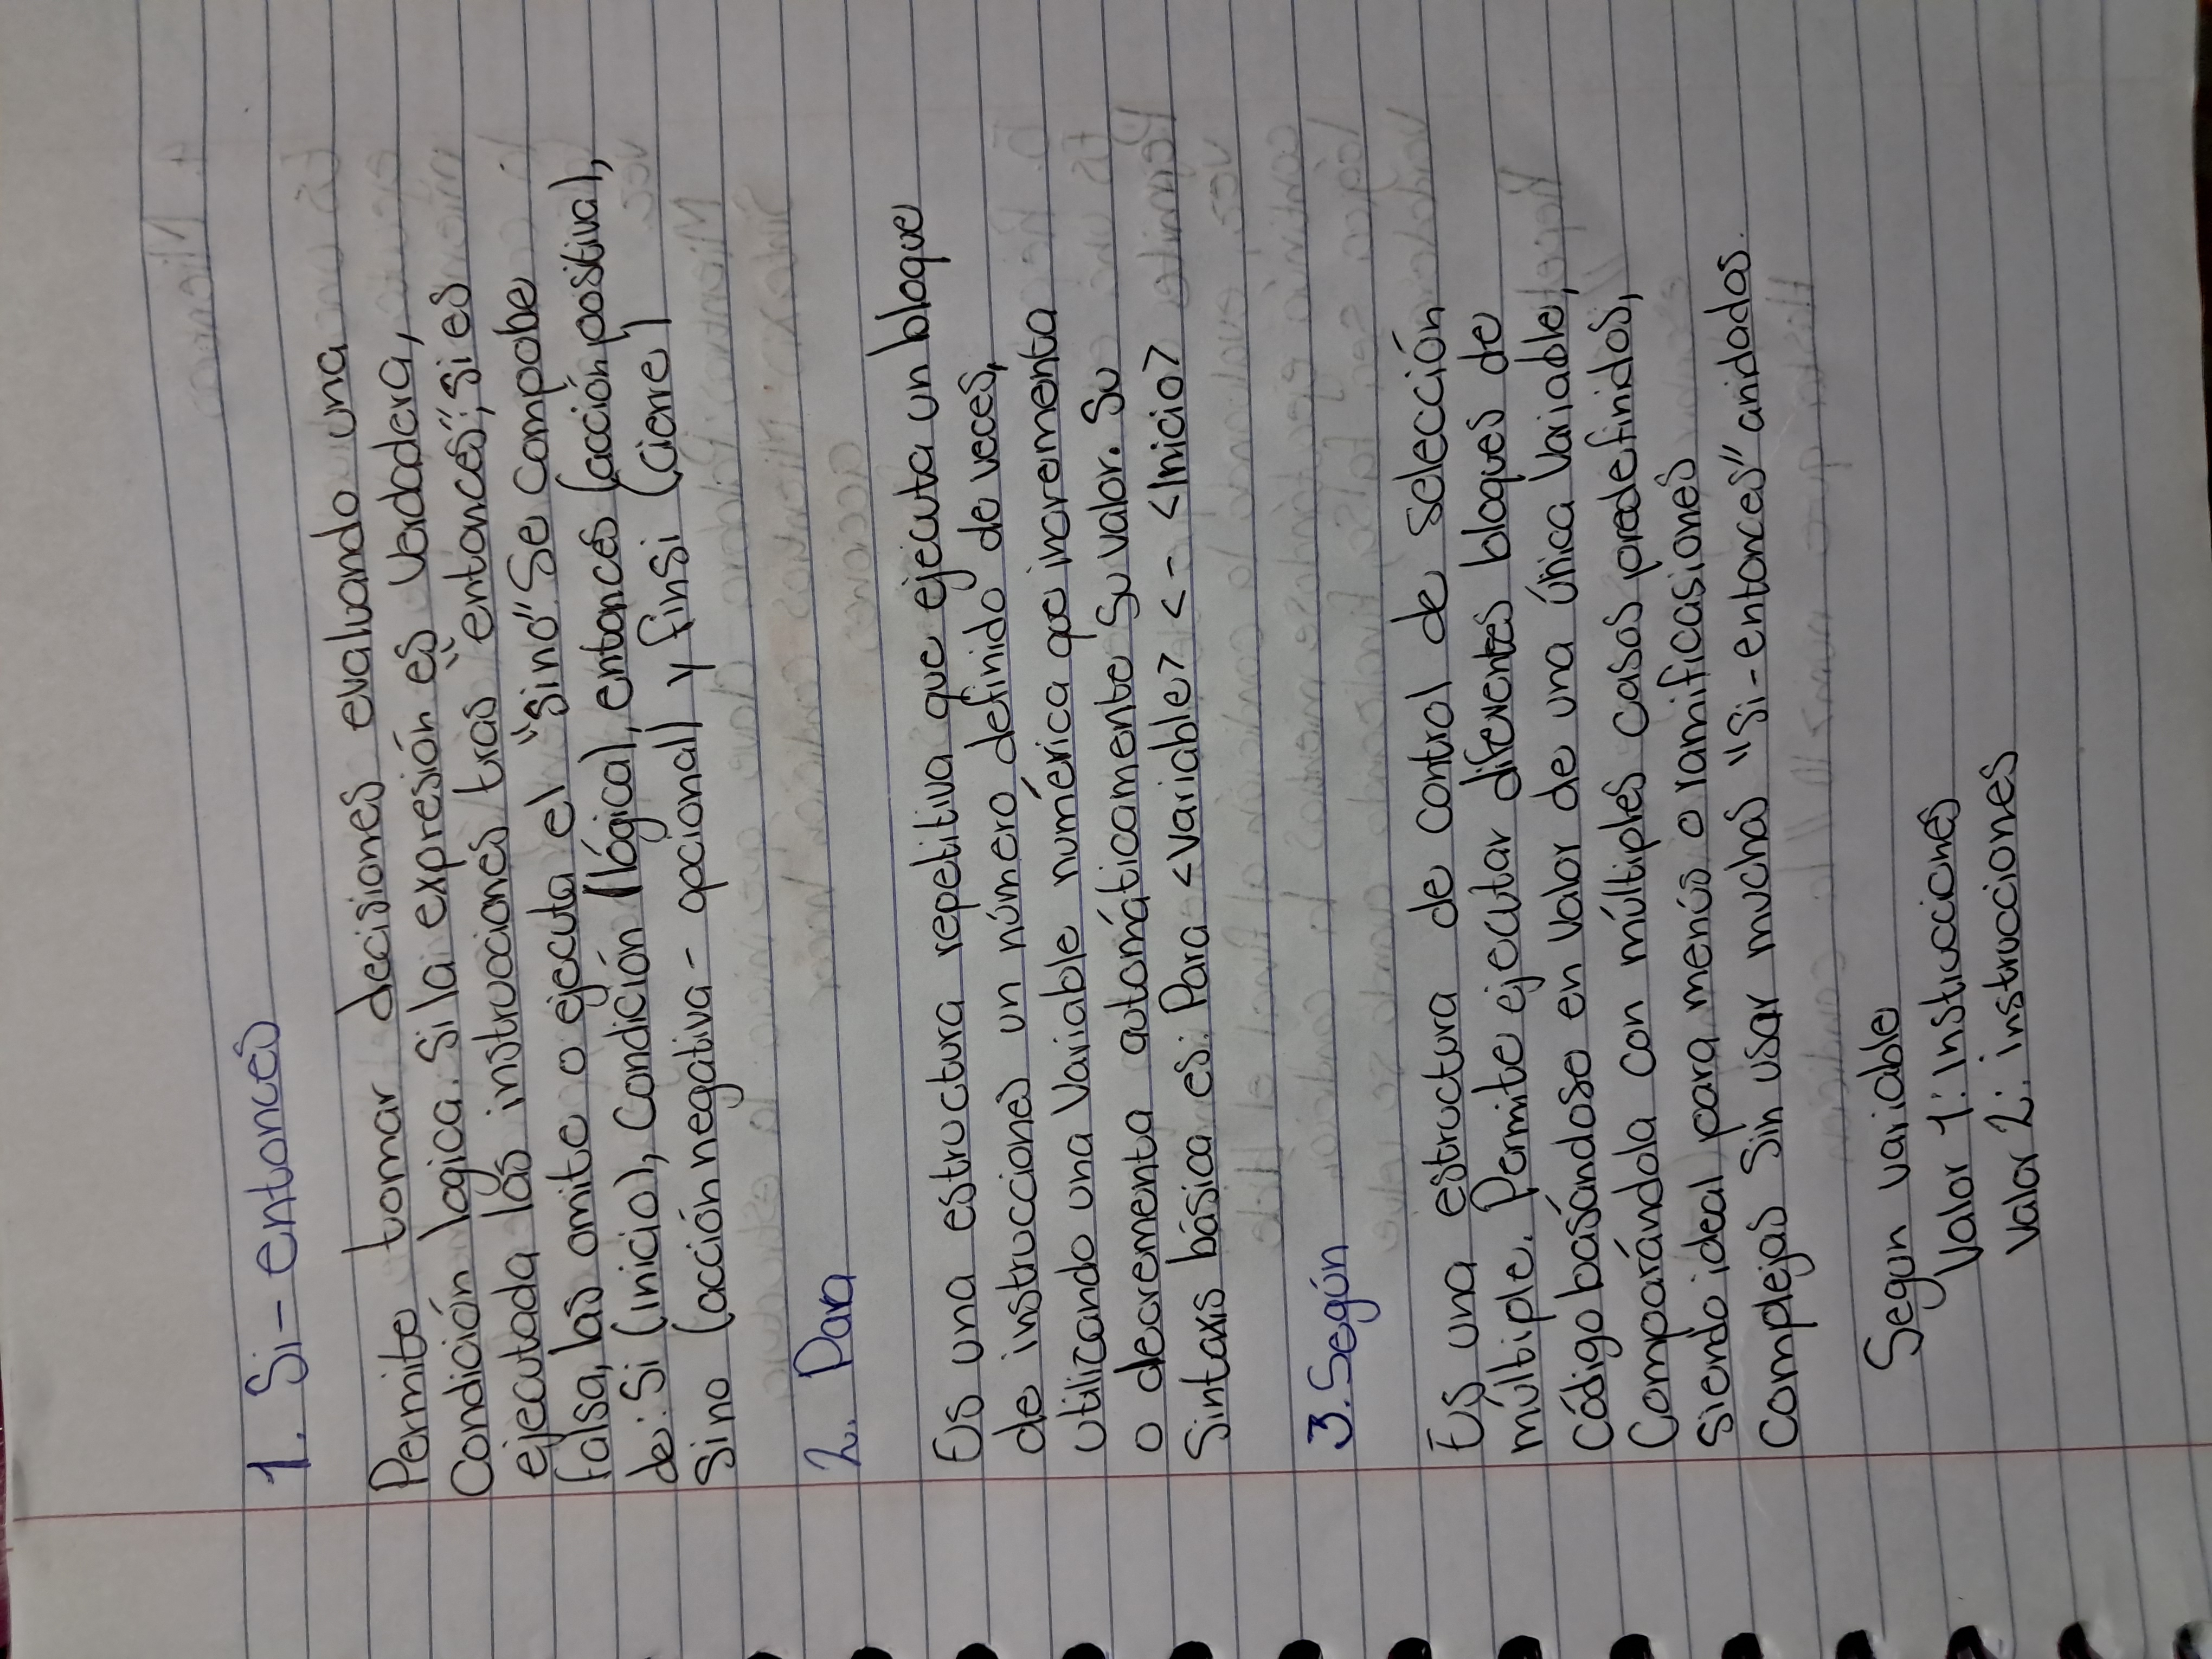 1. Si - entonces
Permite tomar decisiones evaluando una
Condición logica. Si la expresión es verdadera,
ejecutada las instrucciones tras "entonces"; si es
falsa, las omite o ejecuta el "sino" Se compobe
de: Si (inicio), Condición (lógica), entonces (acción positiva),
Sino (acción negativa - opcional) y finsi (cierre)
2. Para
Es una estructura repetitiva que ejecuta un bloque
de instrucciones un número definido de veces,
utilicando una variable numérica que incrementa
o decrementa automáticamente su valor. Su
Sintaxis básica es: Para <variable> <- <Inicio>
3. Según
Es una estructura de control de selección
múltiple. Permite ejecutar diferentes bloques de
Código basándose en valor de una única variable,
Comparándola con múltiples casos predefinidos,
Siendo ideal para menús o ramificasiones
Complejas Sin usar muchas "Si-entonces" anidados.
Segun variable
Valor 1: Instrucciones
Valor 2: instrucciones